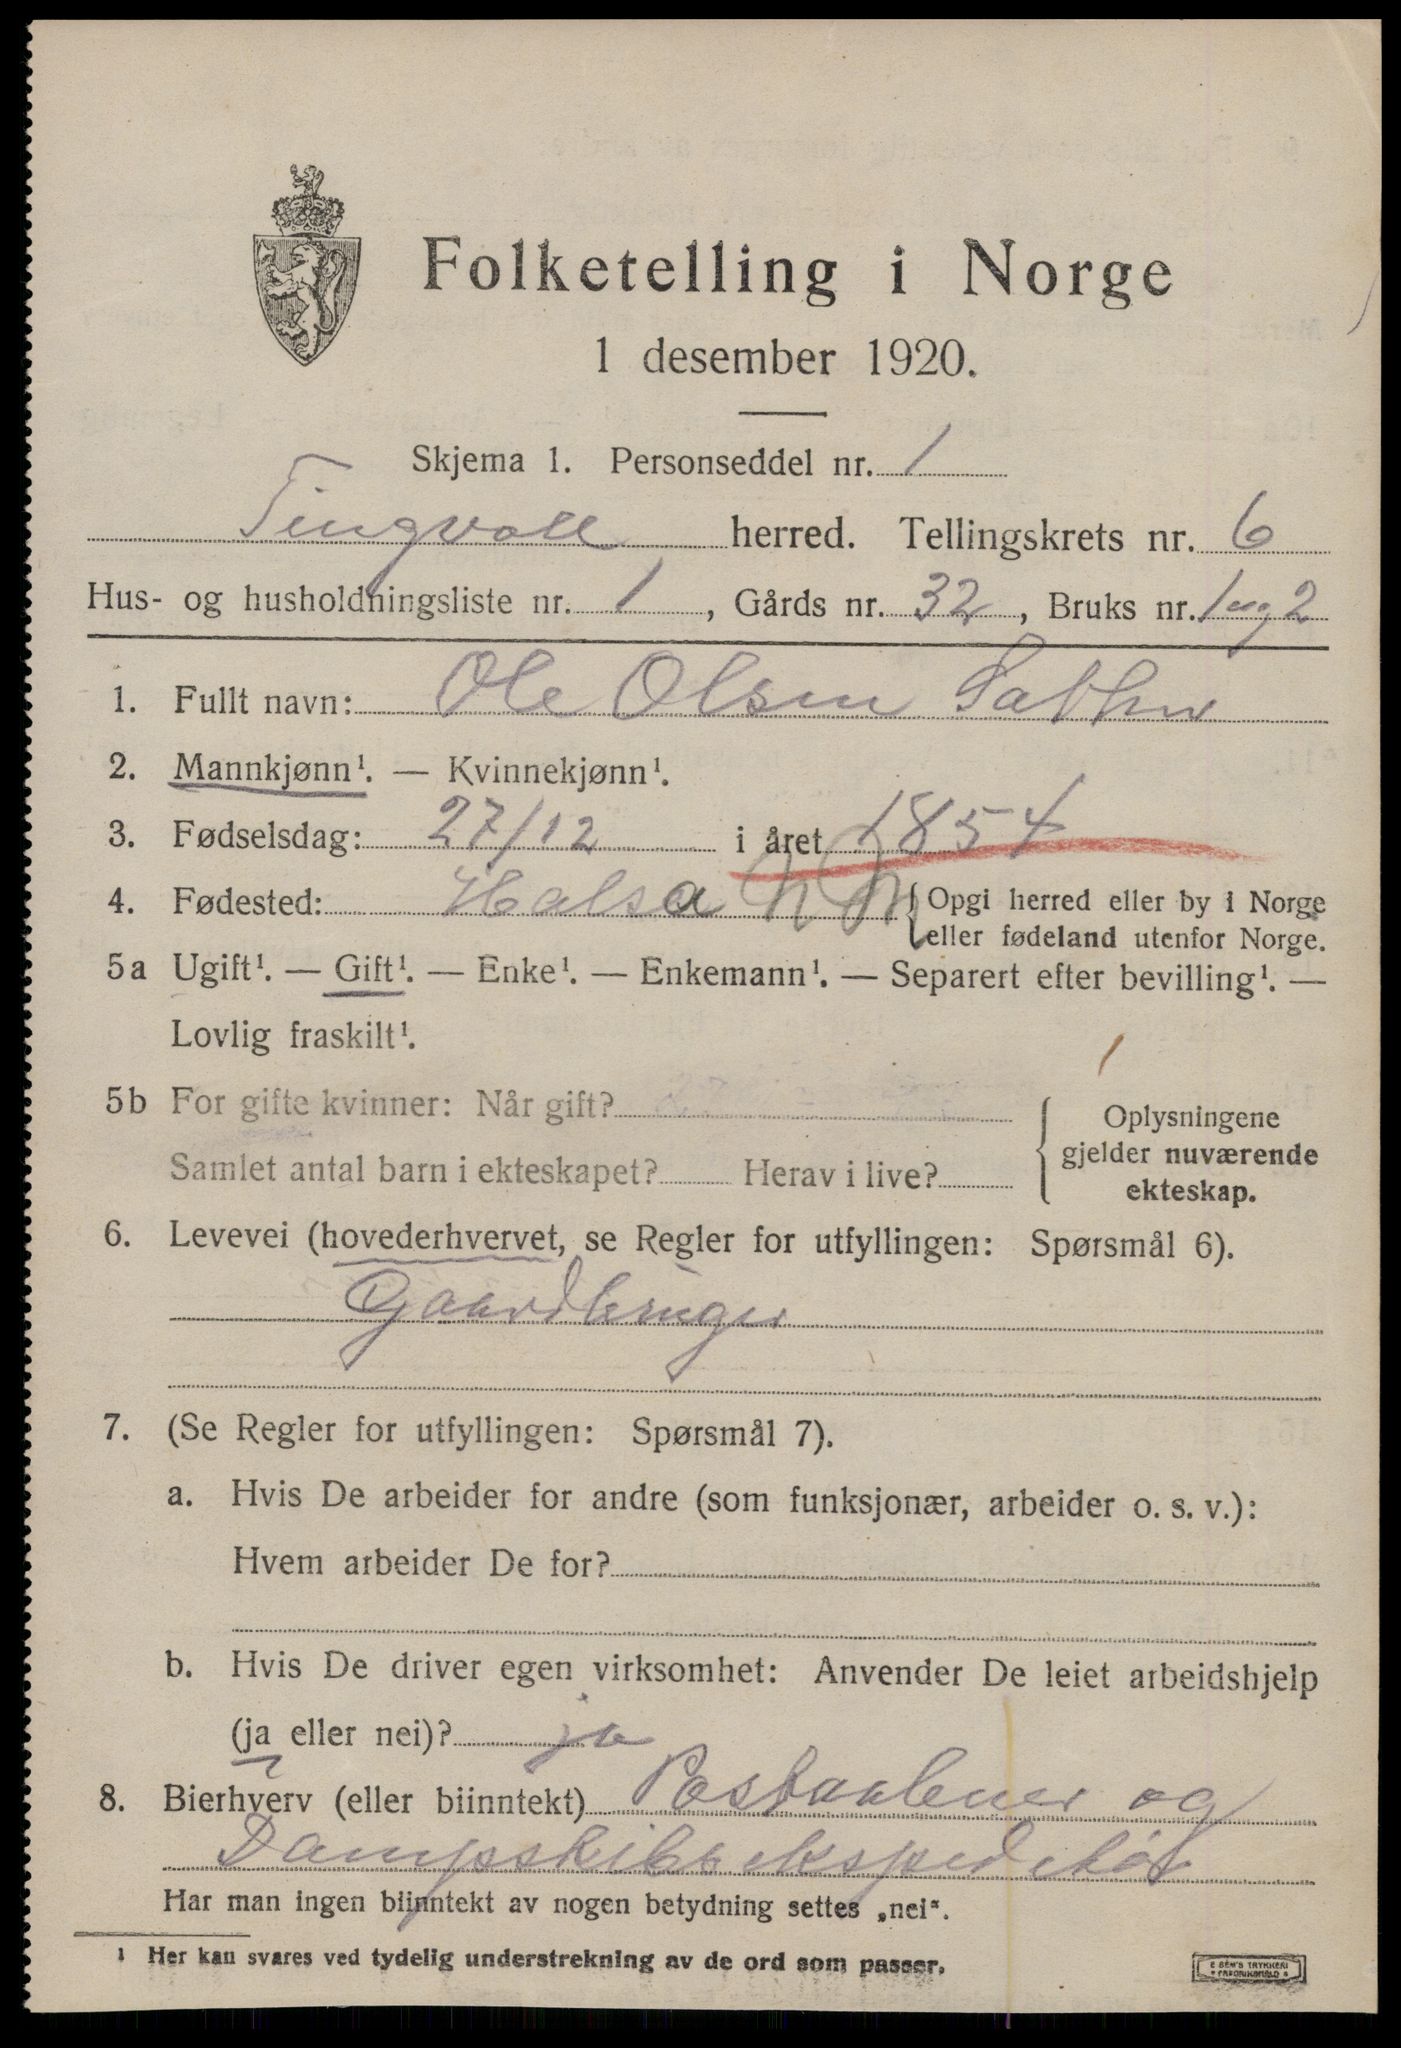 Folketelling i Norge
1 desember 1920.
Skjema 1. Personseddel nr. 1
Tingvoll herred. Tellingskrets nr. 6
Hus- og husholdningsliste nr. 1, Gårds nr. 32, Bruks nr. 1 og 2
1. Fullt navn: Ole Olsen
2. Mannkjønn¹. — Kvinnekjønn¹.
3. Fødselsdag: 27/12 i året 1854
4. Fødested: Halsa { Opgi herred eller by i Norge
eller fødeland utenfor Norge.
5a Ugift¹. — Gift¹. — Enke¹. — Enkemann¹. — Separert efter bevilling¹. —
Lovlig fraskilt¹.
1
5b For gifte kvinner: Når gift?
Samlet antal barn i ekteskapet? Herav i live?
Oplysningene
gjelder nuværende
ekteskap.
6. Levevei (hovederhvervet, se Regler for utfyllingen: Spørsmål 6).
Gaardbruger
7. (Se Regler for utfyllingen: Spørsmål 7).
a. Hvis De arbeider for andre (som funksjonær, arbeider o. s. v.):
Hvem arbeider De for?
b. Hvis De driver egen virksomhet: Anvender De leiet arbeidshjelp
(ja eller nei)? ja
8. Bierhverv (eller biinntekt) Postaabner og
Dampskibsekspeditør
Har man ingen biinntekt av nogen betydning settes „nei".
¹ Her kan svares ved tydelig understrekning av de ord som passer.
E SEM'S TRYKKERI
FREDRIKSHALD